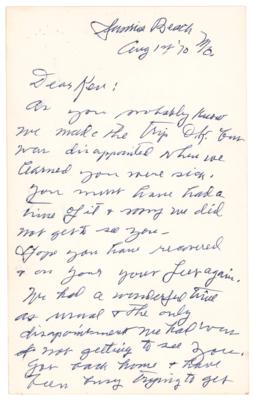 Beach
Aug 14 '70
Dear Ken:
As you probably know
we made the trip O.K. but
was disappointed when we
learned you were sick.
You must have had a
time of it & sorry we did
not get to see you –
Hope you have recovered
& on your feet again.
We had a wonderful time
as usual & the only
disappointment we had was
not getting to see you.
Got back home & have
been busy trying to get